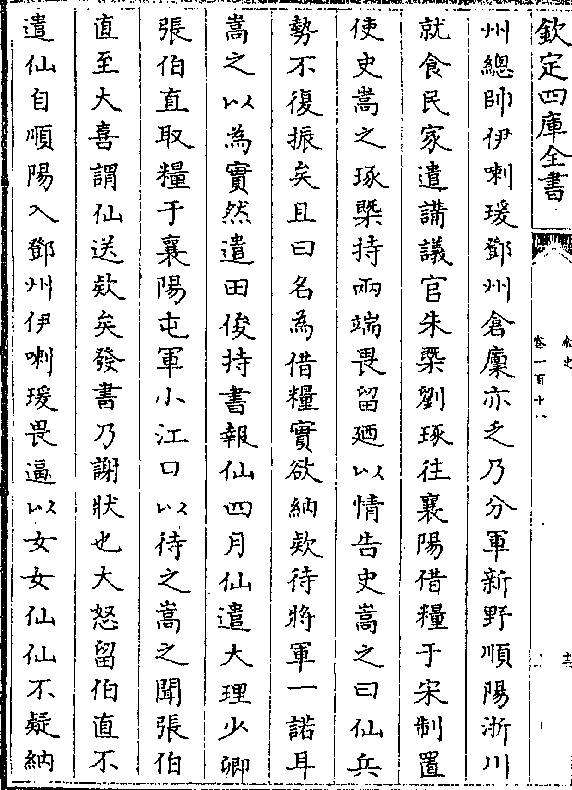 欽定四庫全書
金史
卷一百十八
州總帥伊喇瑗鄧州倉廩亦乏乃分軍新野順陽淅川
就食民家遣講議官朱槩劉琢往襄陽借糧于宋制置
使史嵩之琢槩持兩端畏留廼以情告史嵩之曰仙兵
勢不復振矣且曰名為借糧實欲納欵待將軍一諾耳
嵩之以為實然遣田俊持書報仙四月仙遣大理少卿
張伯直取糧于襄陽屯軍小江口以待之嵩之聞張伯
直至大喜謂仙送欵矣發書乃謝狀也大怒留伯直不
遣仙自順陽入鄧州伊喇瑗畏逼以女女仙仙不疑納